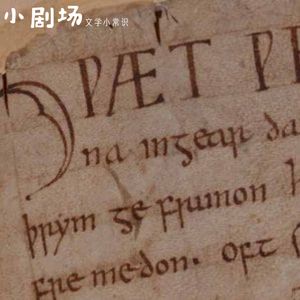 小剧场 文学小常识
HǷÆT Ƿ
na ingear da
þrym ge frunon
fre medon. oft